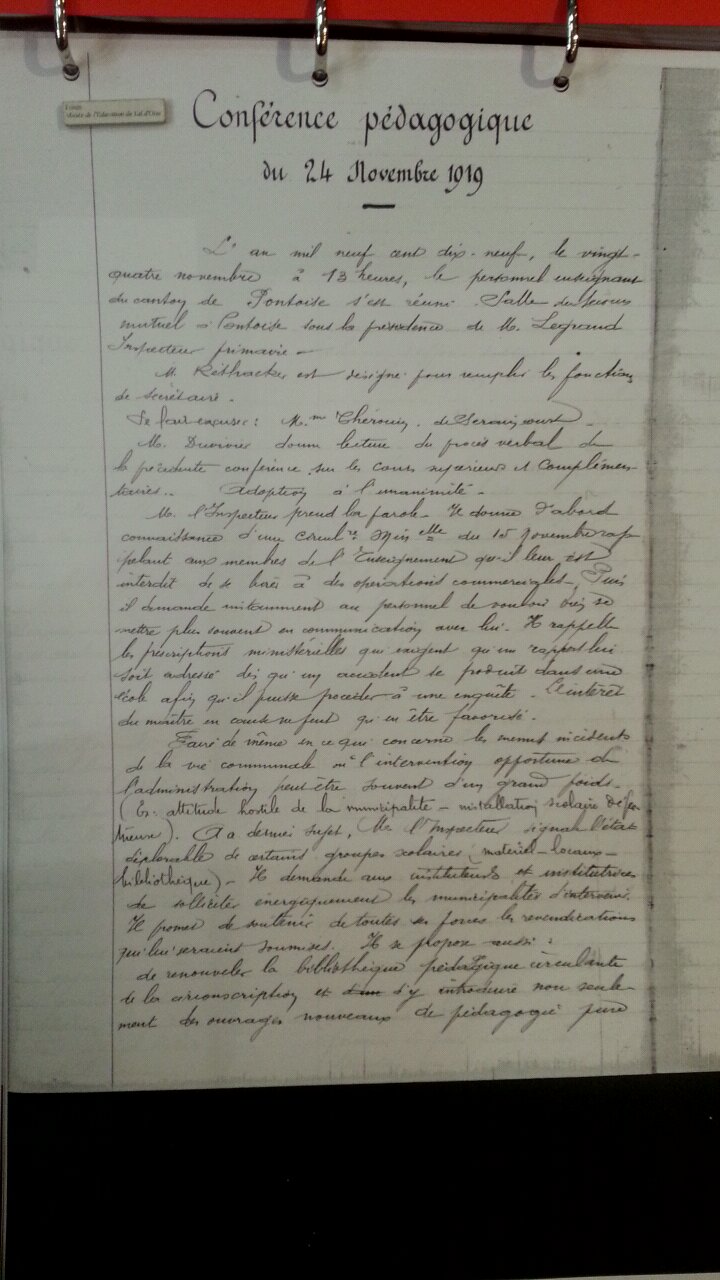 Musée de l'Education du Val d'Oise
Conférence pédagogique
du 24 Novembre 1919
L'an mil neuf cent dix-neuf, le vingt-
quatre novembre à 13 heures, le personnel enseignant
du canton de Pontoise s'est réuni Salle du Secours
mutuel à Pontoise sous la présidence de M. Legrand
Inspecteur primaire -
M. est désigné pour remplir les fonctions
de secrétaire.
Se fait excuser : M.me
M. Duvivier donne lecture du procès verbal de
la précédente conférence sur les cours supérieurs et complémen-
taires. - Adoption à l'unanimité -
M. l'Inspecteur prend la parole - Il donne d'abord
connaissance d'une circul.re Min.elle du 15 Novembre rap-
pelant aux membres de l'Enseignement qu'il leur est
interdit de se livrer à des opérations commerciales - Puis
il demande instamment au personnel de vouloir bien se
mettre plus souvent en communication avec lui - Il rappelle
les prescriptions ministérielles qui exigent qu'un rapport lui
soit adressé dès qu'un accident se produit dans une
école afin qu'il puisse procéder à une enquête - L'intérêt
du maître en cause ne peut qu'en être favorisé.
Faire de même en ce qui concerne les menus incidents
de la vie communale où l'intervention opportune de
l'administration peut être souvent d'un grand poids -
(Ex: attitude hostile de la municipalité - installation scolaire défec-
tueuse). A ce dernier sujet, M. l'Inspecteur signale l'état
déplorable de certains groupes scolaires (matériel - locaux -
bibliothèque) - Il demande aux instituteurs et institutrices
de solliciter énergiquement les municipalités d'intervenir.
Il promet de soutenir de toutes ses forces les revendications
qui lui seraient soumises. Il se propose aussi :
de renouveler la bibliothèque pédagogique circulante
de la circonscription et d'y introduire non seule-
ment des ouvrages nouveaux de pédagogie pure